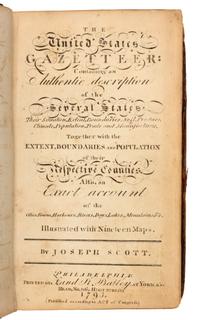 THE
United States
GAZETTEER:
Containing an
Authentic description
of the
Several States.
Their Situation, Extent, Boundaries, Soil, Produce,
Climate, Population, Trade and Manufactures.
Together with the
EXTENT, BOUNDARIES AND POPULATION
of their
Respective Counties.
Also, an
Exact account
of the
Cities, Towns, Harbours, Rivers, Bays, Lakes, Mountains, &c.
Illustrated with Nineteen Maps.
BY JOSEPH SCOTT.
PHILADELPHIA
PRINTED BY F. and R. Bailey, AT YORICK'S
HEAD, No. 116, HIGH STREET.
1795.
(Published according to ACT of Congress.)